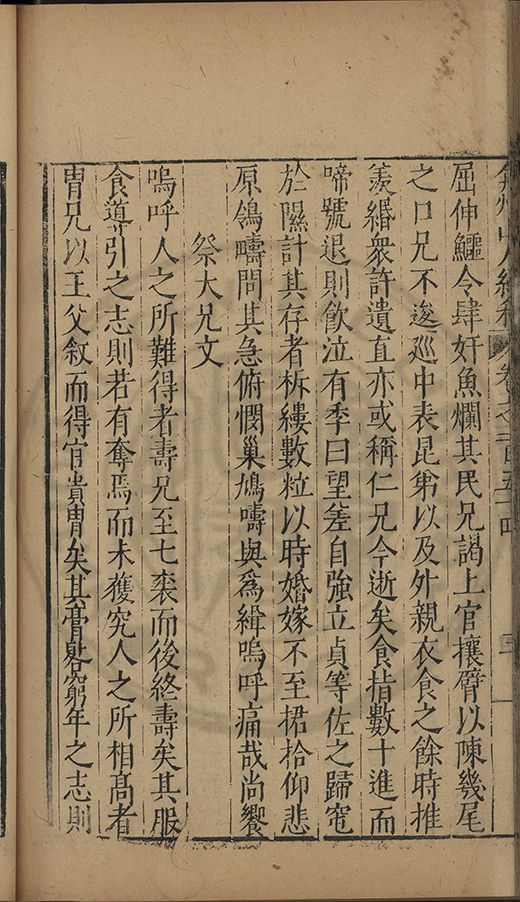 弇州山人續稿 卷之一百五十四
屈伸鱷令肆奸魚爛其民兄謁上官攘臂以陳幾尾
之口兄不逡巡中表昆弟以及外親衣食之餘時推
羨緡衆許遺直亦或稱仁兄今逝矣食指數十進而
啼號退則飲泣有季曰望差自強立貞等佐之歸窀
於隰計其存者柝縷數粒以時婚嫁不至捃拾仰悲
原鴒疇問其急俯憫巢鳩疇與為緝嗚呼痛哉尚饗
祭大兄文
嗚呼人之所難得者壽兄至七袠而後終壽矣其服
食導引之志則若有奪焉而未獲究人之所相高者
冑兄以王父敘而得官貴冑矣其膏晷窮年之志則